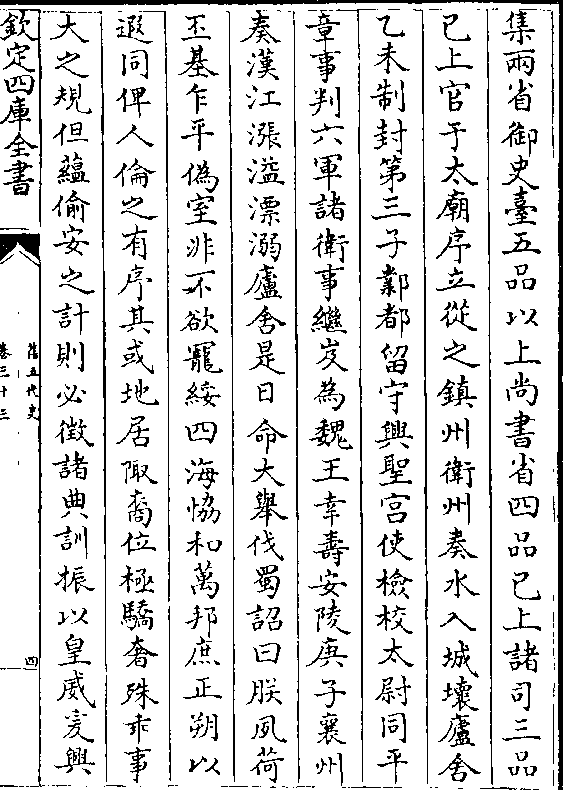 集兩省御史臺五品以上尚書省四品已上諸司三品
已上官于太廟序立從之鎮州衛州奏水入城壞廬舍
乙未制封第三子鄴都留守興聖宮使檢校太尉同平
章事判六軍諸衛事繼岌為魏王幸壽安陵庚子襄州
奏漢江漲溢漂溺廬舍是日命大舉伐蜀詔曰朕夙荷
丕基乍平偽室非不欲寵綏四海協和萬邦庶正朔以
遐同俾人倫之有序其或地居陬裔位極驕奢殊乖事
大之規但蘊偷安之計則必徵諸典訓振以皇威爰興
欽定四庫全書
舊五代史
卷三十三
四